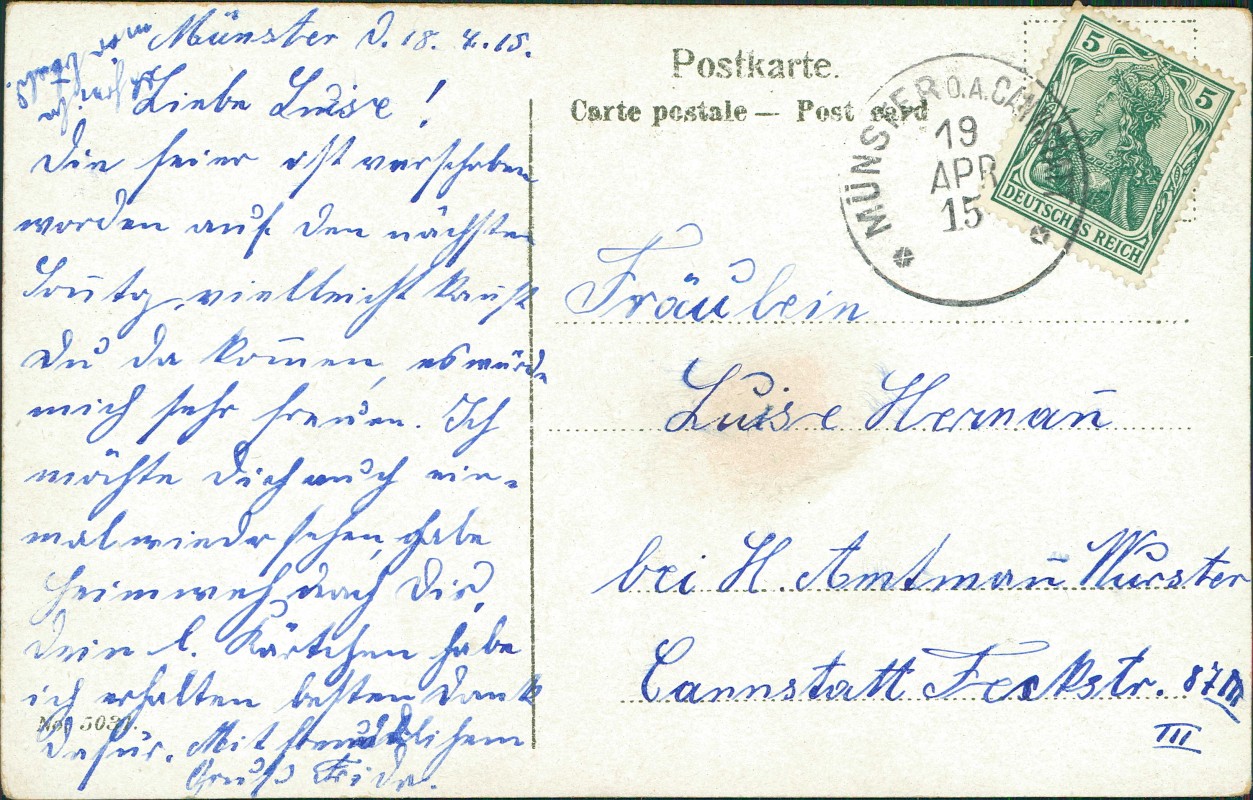 Münster d. 18. 4. 15.
Liebe Luise!
Die Feier ist verschoben
worden auf den nächsten
Soñtg, vielleicht kañst
Du da kom̄en, es würde
mich sehr freuen. Ich
möchte Dich auch ein-
mal wiedersehen, habe
Heimweh nach Dir,
Dein l. Kärtchen habe
ich erhalten besten Dank
dafür. Mit freundlichem
Gruß Frida.
schreibe
mir bald
Postkarte.
Carte postale — Post card
MÜNSTER O.A. CANNSTATT
19
APR
15
5 5
DEUTSCHES REICH
Fräulein
Luise Hermañ
bei H. Amtmañ Wurster
Cannstatt Feckstr. 87 III
III
No. 503